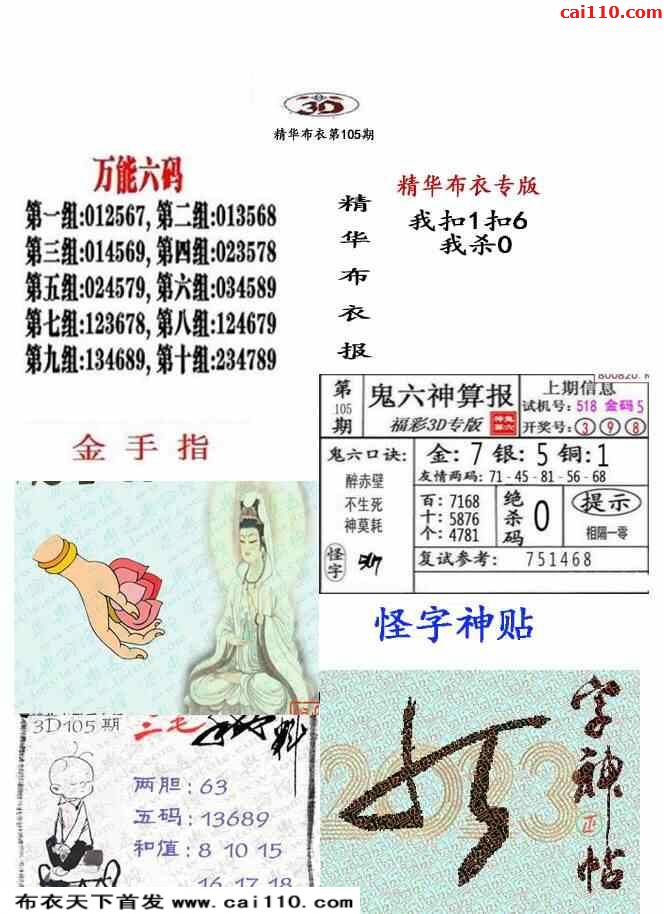 cai110.com
3D
精华布衣第105期
万能六码
第一组:012567, 第二组:013568
第三组:014569, 第四组:023578
第五组:024579, 第六组:034589
第七组:123678, 第八组:124679
第九组:134689, 第十组:234789
精华布衣报
精华布衣专版
我扣1扣6
我杀0
金手指
第105期
鬼六神算报
福彩3D专版
上期信息
试机号: 518 金码 5
开奖号: 3 9 8
鬼六口诀:
醉赤壁
不生死
神莫耗
怪字
金: 7 银: 5 铜: 1
友情两码: 71-45-81-56-68
百: 7168
十: 5876
个: 4781
绝杀码 0
提示
相隔一零
复试参考: 751468
怪字神贴
3D105期
三毛
两胆: 63
五码: 13689
和值: 8 10 15
16 17 18
2023
字神帖
正
布衣天下首发 www.cai110.com